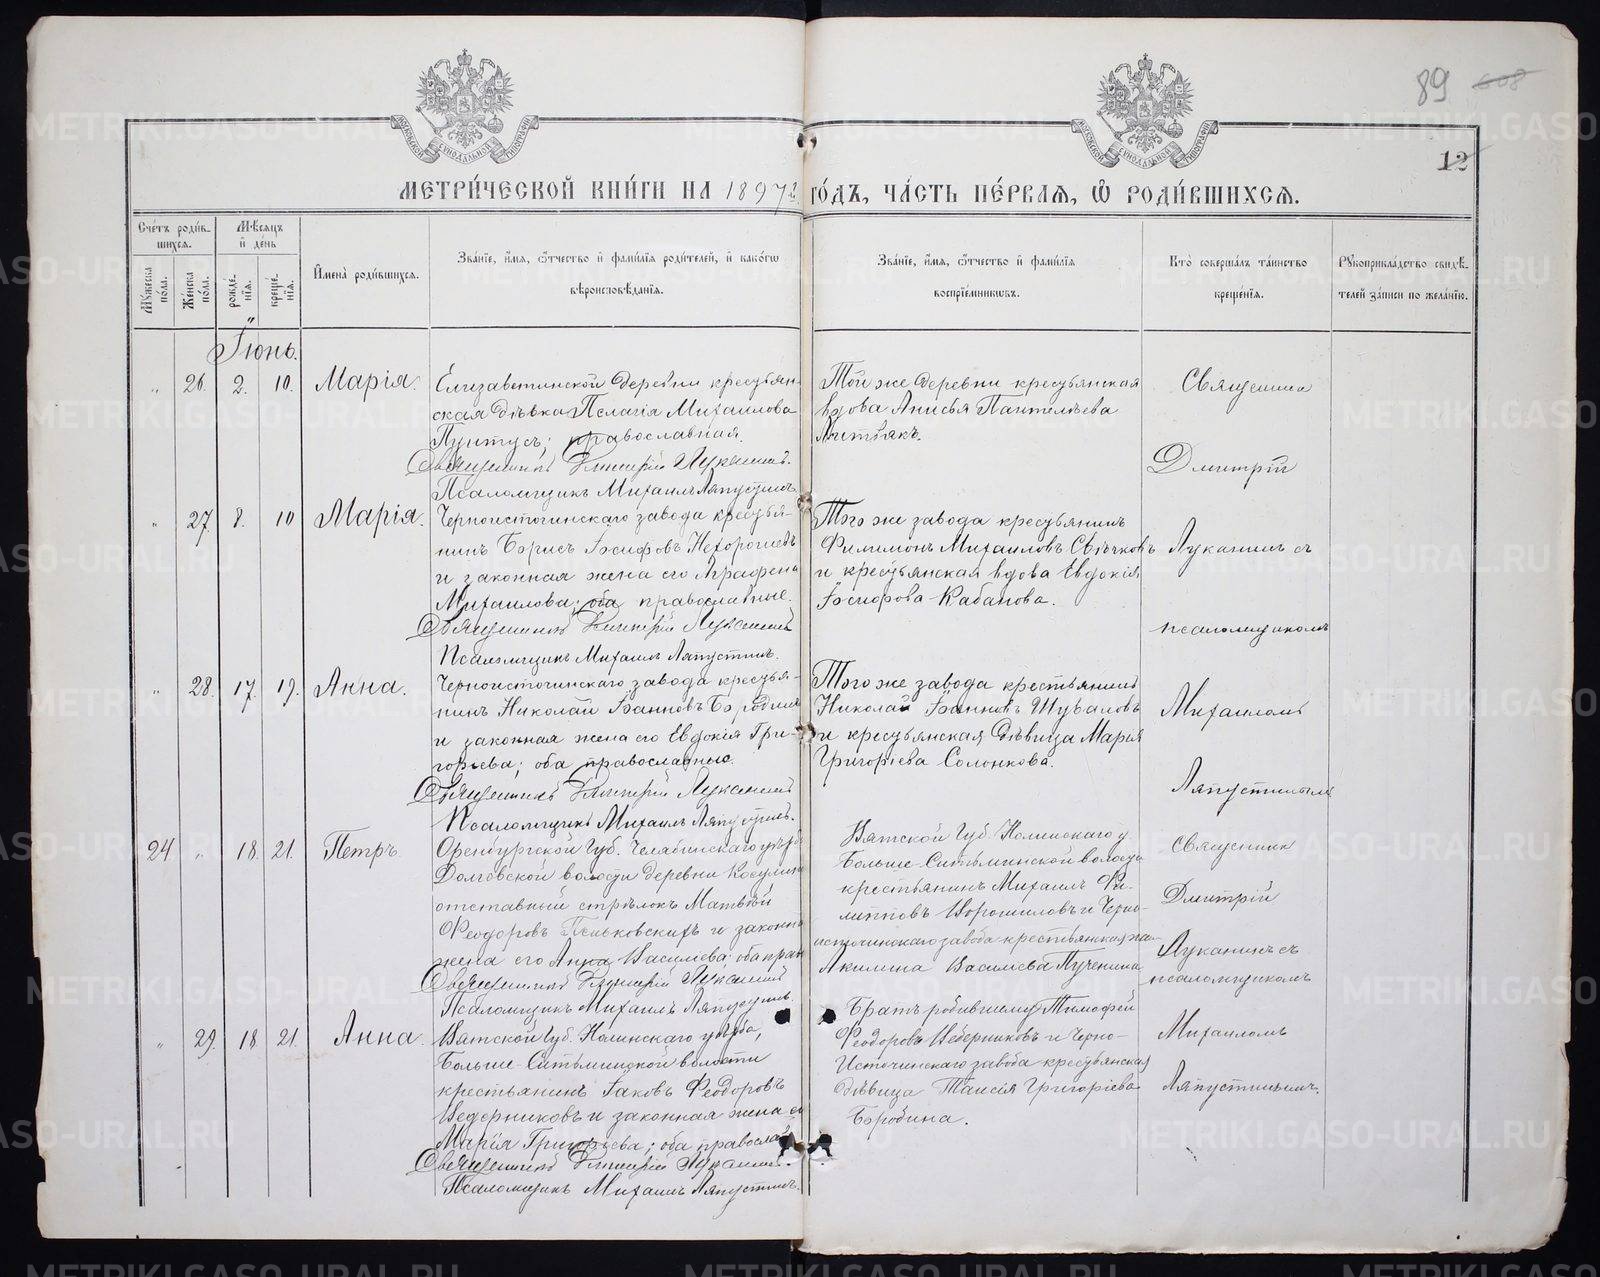 89 608
12
МОСКОВСКОЙ СѴНОДАЛЬНОЙ ТИПОГРАФІИ
МОСКОВСКОЙ СѴНОДАЛЬНОЙ ТИПОГРАФІИ
МЕТРИ́ЧЕСКОЙ КНИ́ГИ НА 1897 г. ГО́ДЪ, ЧА́СТЬ ПЕ́РВАЯ, Ѽ РОДИ́ВШИХСЯ.
Сче́тъ роди́вшихся.
Му́жеска по́ла.
Же́нска по́ла.
Мѣ́сяцъ и҆ де́нь
рожде́нїя.
креще́нїя.
И҆мена̀ роди́вшихся.
Зва́нїе, и҆́мя, ѻ҆́тчество и҆ фамі́лїя роди́телей, и҆ како́гѡ
вѣроисповѣ́данїя.
Зва́нїе, и҆́мя, ѻ҆́тчество и҆ фамі́лїя
воспрїе́мникѡвъ.
Кто̀ соверша́лъ та́инство
креще́нїя.
Рꙋкоприкла́дство свидѣ́-
телей за́писи по жела́нїю.
Іюнь.
„ 26. 2. 10. Марія.
Елизаветинской деревни крестьян-
ская дѣвка Пелагія Михаилова
православная.
Священникъ Димитрій Луканинъ.
Псаломщикъ Михаилъ Ляпустинъ.
Той же деревни крестьянская
вдова Анисья Пантелѣева
Священник
Дмитрій
„ 27. 8. 10 Марія.
Черноисточинскаго завода крестья-
нинъ Борисъ Іосифовъ Нехорошевъ
и законная жена его Аграфена
Михаилова; оба православные.
Священникъ Димитрій Луканинъ
Псаломщикъ Михаилъ Ляпустинъ.
Того же завода крестьянинъ
Филимонъ Михаиловъ Свѣчковъ
и крестьянская вдова Евдокія
Іосифова Кабанова.
Луканинъ съ
псаломщикомъ
„ 28. 17. 19. Анна.
Черноисточинскаго завода крестья-
нинъ Николай Іоанновъ Бородинъ
и законная жена его Евдокія Гри-
горьева; оба православные.
Священникъ Димитрій Луканинъ
Псаломщикъ Михаилъ Ляпустинъ.
Того же завода крестьянинъ
Николай Іоанновъ Шуваловъ
и крестьянская дѣвица Марія
Григоріева Солонкова.
Михаиломъ
Ляпустинымъ
24. „ 18. 21. Петръ
Оренбургской Губ. Челябинскаго уѣзда
Долговской волости деревни Косулиной
отставный стрѣлокъ Матвѣй
Феодоровъ Пеньковскихъ и законная
жена его Анна Васильева; оба прав.
Священникъ Димитрій Луканинъ
Псаломщикъ Михаилъ Ляпустинъ.
Вятской Губ. Нолинскаго у.
Больше-Ситьминской волости
крестьянинъ Михаилъ Фи-
липповъ Ворошиловъ и Черно-
источинскаго завода крестьянская жена
Акилина Васильева Пученина
Священник
Дмитрій
Луканинъ съ
псаломщикомъ
„ 29. 18 21. Анна.
Вятской Губ. Нолинскаго уѣзда,
Больше-Ситьминской волости
крестьянинъ Іаковъ Феодоровъ
Ведерниковъ и законная жена его
Марія Григорьева; оба православ.
Священникъ Димитрій Луканинъ.
Псаломщикъ Михаилъ Ляпустинъ.
Братъ родившему Тимофей
Феодоровъ Ведерниковъ и Черно-
источинскаго завода крестьянская
дѣвица Таисія Григоріева
Бородина.
Михаиломъ
Ляпустинымъ.
METRIKI.GASO-URAL.RU